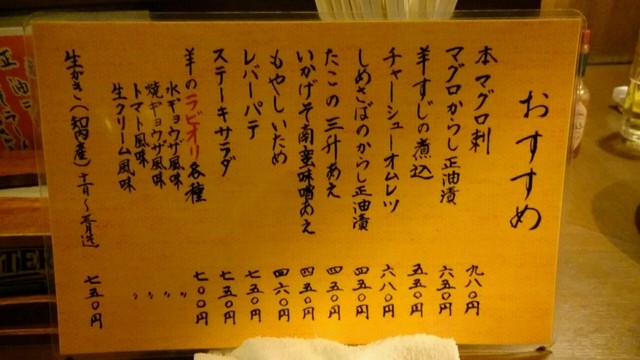 おすすめ
本マグロ刺 九八〇円
マグロからし正油漬 六五〇円
羊すじの煮込 五五〇円
チャーシューオムレツ 六八〇円
しめさばのからし正油漬 四五〇円
たこの三升あえ 四五〇円
いかげそ南蛮味噌あえ 四五〇円
もやしいため 四六〇円
レバーパテ 七五〇円
ステーキサラダ 七五〇円
羊のラビオリ各種 七〇〇円
水ギョウザ風味 〃
焼ギョウザ風味 〃
トマト風味 〃
生クリーム風味 〃
生かき(知内産) 七五〇円